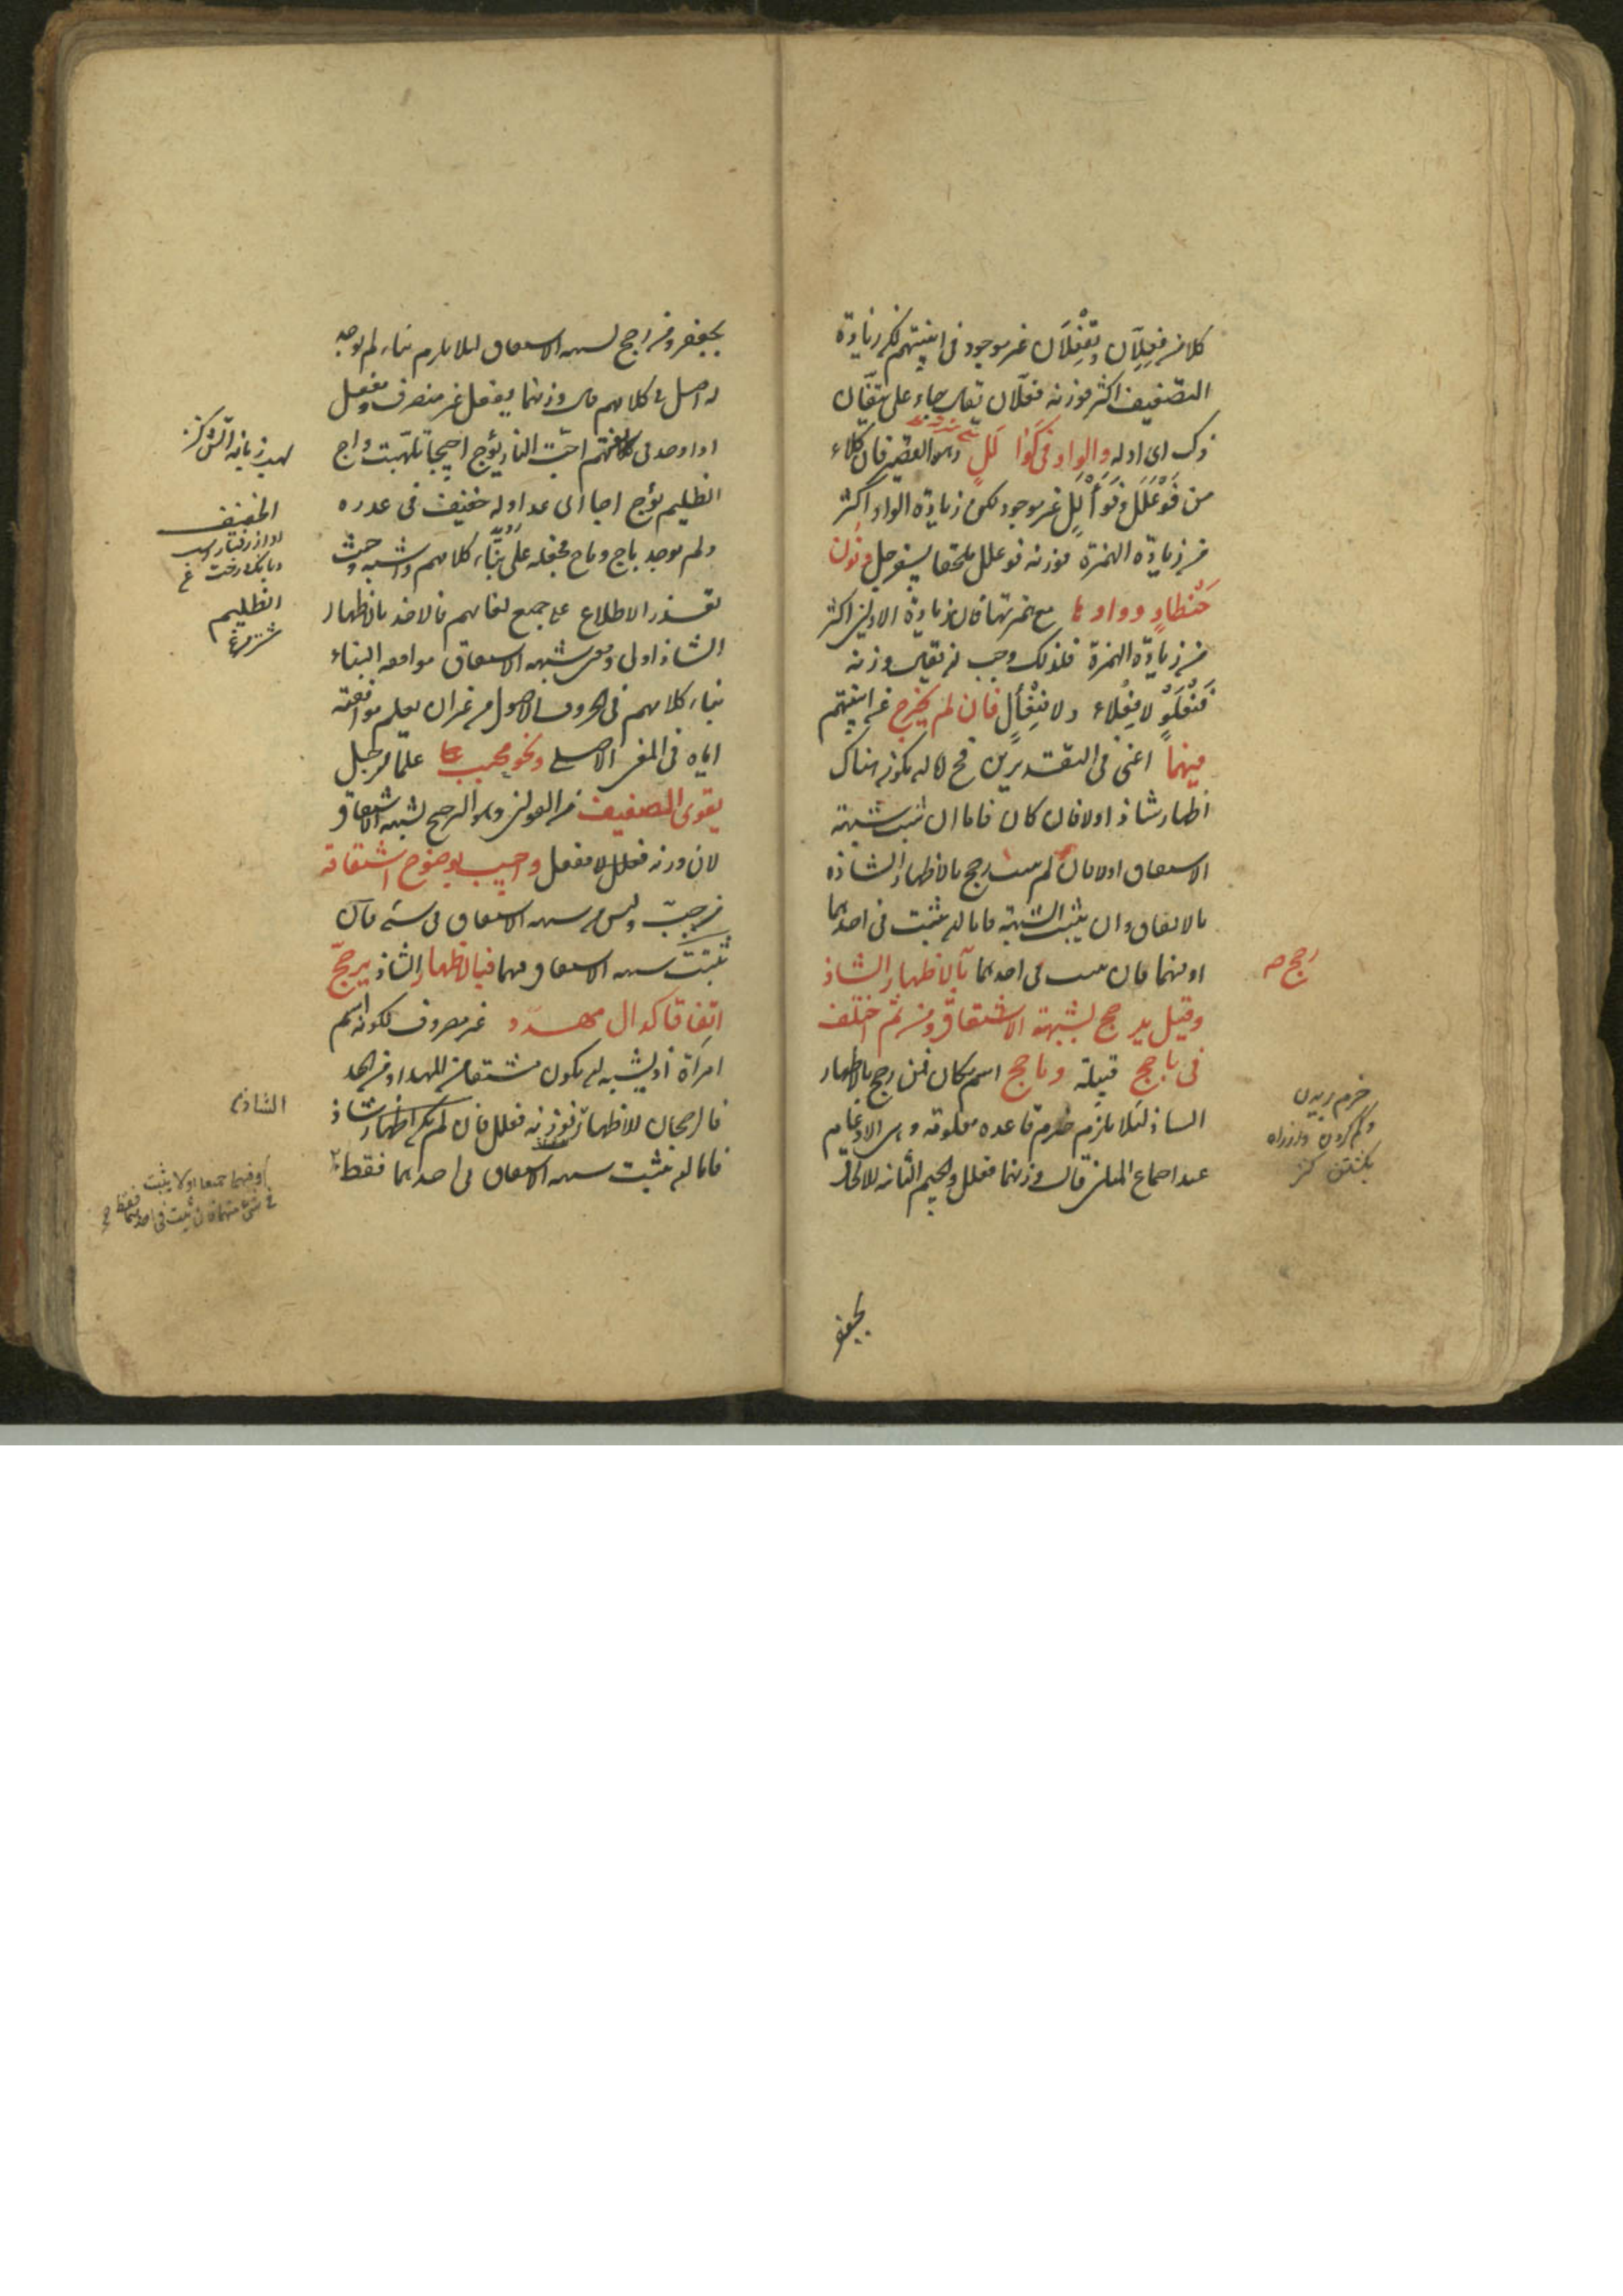 كلا من فِعِلَّان وتِفْعِلان غير موجود فى ابنيتهم لكن زيادة
التضعيف اكثر فوزنه فعلان يقال جاء على تئفان
ذلك اى اوله والواو فى كَوَأْلَلٍ وهو القصير فان كلاء
من فَوَعْلَل وفَوَأْلَل غير موجود لكن زيادة الواو اكثر
من زيادة الهمزة فوزنه فوعلل ملحقا بسفرجل ونون
حِنْطَأوٍ وواوها مع همزتها فان زيادة الاولين اكثر
من زيادة الهمزة فلذلك وجب ان يقال وزنه
فِنْعَلْوٌ لا فِعْلاء ولا فِنْعَأْل فان لم يخرج عن ابنيتهم
فيهما اعنى فى التقديرين فح لا له يكون هناك
اظهار شاذ اولا فان كان فاما ان ثبت شبهة
الاشتقاق اولا فان لم يثبت رجح بالاظهار الشاذ
بالاتفاق وان يثبت الشبهة فاما ان يثبت فى احدهما
او فيهما فان ثبت فى احدهما بالاظهار الشاذ
وقيل يرجح لشبهة الاشتقاق ومن ثم اختلف
فى يأجج قبيلة ومأجج اسم مكان فمن رجح بالاظهار
الشاذ لئلا يلزم خرم قاعدة معلومة وهى الادغام
عند اجتماع المثلين قال وزنهما فعلل والجيم الثانية للالحاق
رجح
خرم بريدن
وكم كردن
بكشتن كنز
بجعفر
بجعفر ومن رجح لشبهة الاشتقاق لئلا يلزم بناء لم يوجد
له اصل فى كلامهم قال وزنهما يفعل غير منصرف ومفعل
اذا وجد فى كلامهم اجّت النار يؤج اجيجا تلهبت واج
الظليم يؤج اجا اى عدا وله حفيف فى عدوه
ولم يوجد يأج ومأج فحمله على بناء كلامهم واشبه وحيث
تعذر الاطلاع على جميع لغاتهم فالاخذ بالاظهار
الشاذ اولى ومعنى شبهة الاشتقاق موافقة البناء
بناء كلامهم فى الحروف الاصول من غير ان يعلم موافقته
اياه فى المعنى الاصلى ونحو محبب علما لرجل
يقوى الضعيف من القولين وهو الترجيح لشبهة الاشتقاق
لان وزنه فعلل لا مفعل واجيب بوضوح اشتقاقه
من حبّ وليس من شبهة الاشتقاق فى شئ فان
ثبتت شبهة الاشتقاق فيهما فبالاظهار الشاذ يرجّح
اتفاقا كدال مهدد غير مصروف لكونه اسم
امرأة اذ يشبه ان يكون مشتقا من المهد او من الهد
فالرجحان للاظهار فوزنه فعلل فان لم يكن اظهار شاذ
فاما ان يثبت شبهة الاشتقاق فى احدهما فقط
لهب زبانه آتش كنز
الحفيف
آواز رفتار اسب
وبانك درخت
الظليم
شترمرغ
الشاذ
او فيهما جميعا او لا يثبت
فى شئ منهما فان ثبت فى احدهما فقط